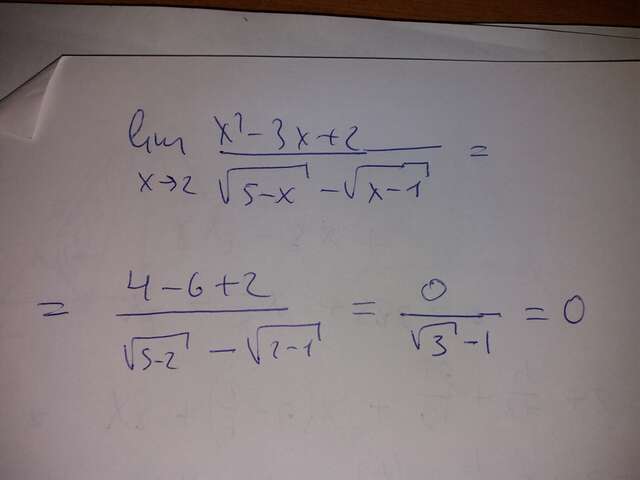 lim x→2 (x² - 3x + 2) / (√(5-x) - √(x-1)) =
= (4 - 6 + 2) / (√(5-2) - √(2-1)) = 0 / (√3 - 1) = 0